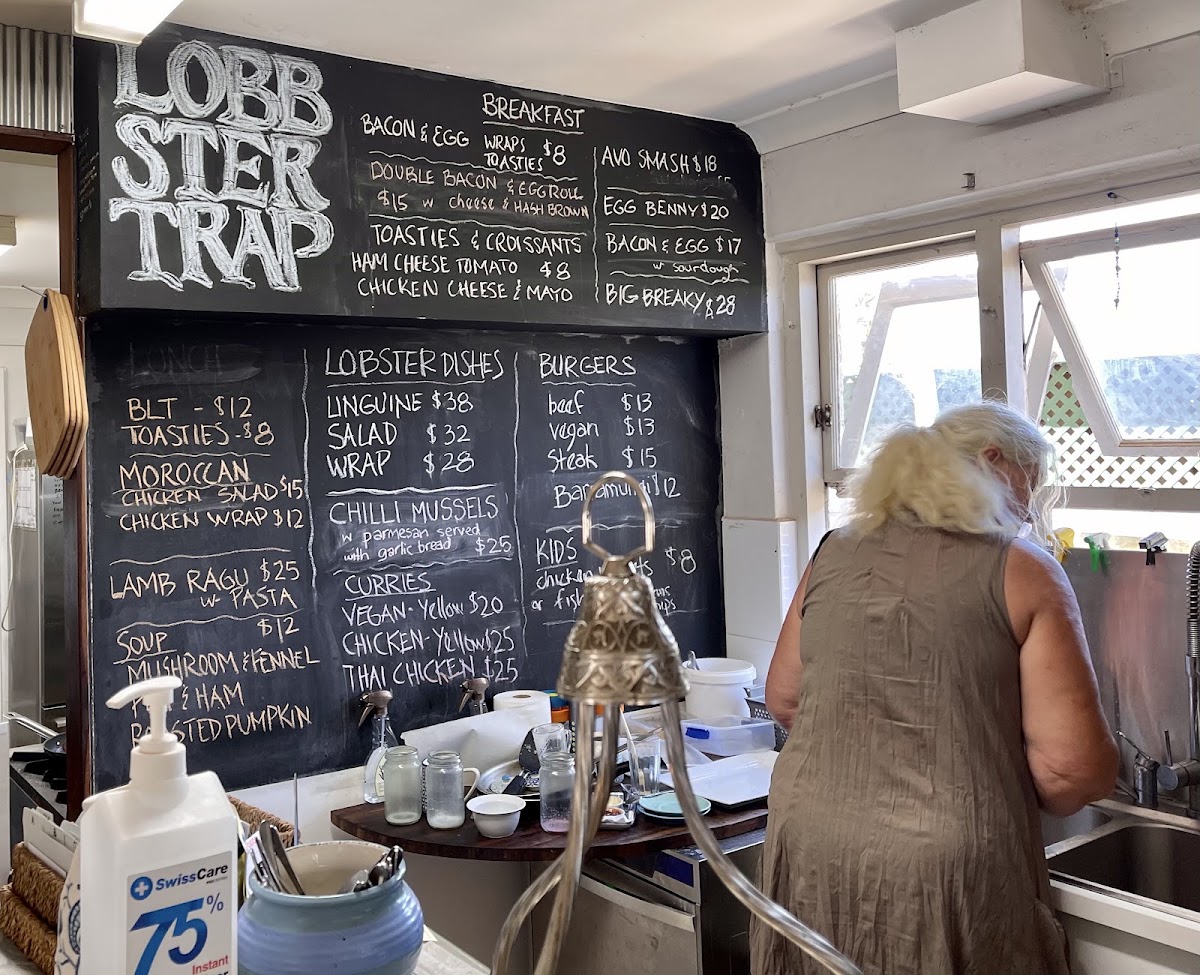 LOBB
STER
TRAP
BREAKFAST
BACON & EGG WRAPS $8
TOASTIES
DOUBLE BACON & EGG ROLL
$15 w cheese & HASH BROWN
TOASTIES & CROISSANTS
HAM CHEESE TOMATO $8
CHICKEN CHEESE & MAYO
AVO SMASH $18
EGG BENNY $20
BACON & EGG $17
w sourdough
BIG BREAKY $28
LUNCH
BLT - $12
TOASTIES - $8
MOROCCAN
CHICKEN SALAD $15
CHICKEN WRAP $12
LAMB RAGU $25
w- PASTA
SOUP $12
MUSHROOM & FENNEL
& HAM
ROASTED PUMPKIN
LOBSTER DISHES
LINGUINE $38
SALAD $32
WRAP $28
CHILLI MUSSELS
w parmesan served
with garlic bread $25
CURRIES
VEGAN - Yellow $20
CHICKEN - Yellow $25
THAI CHICKEN $25
BURGERS
beef $13
vegan $13
Steak $15
Barramundi $12
KIDS $8
chicken
or fish
SwissCare
75%
Instant